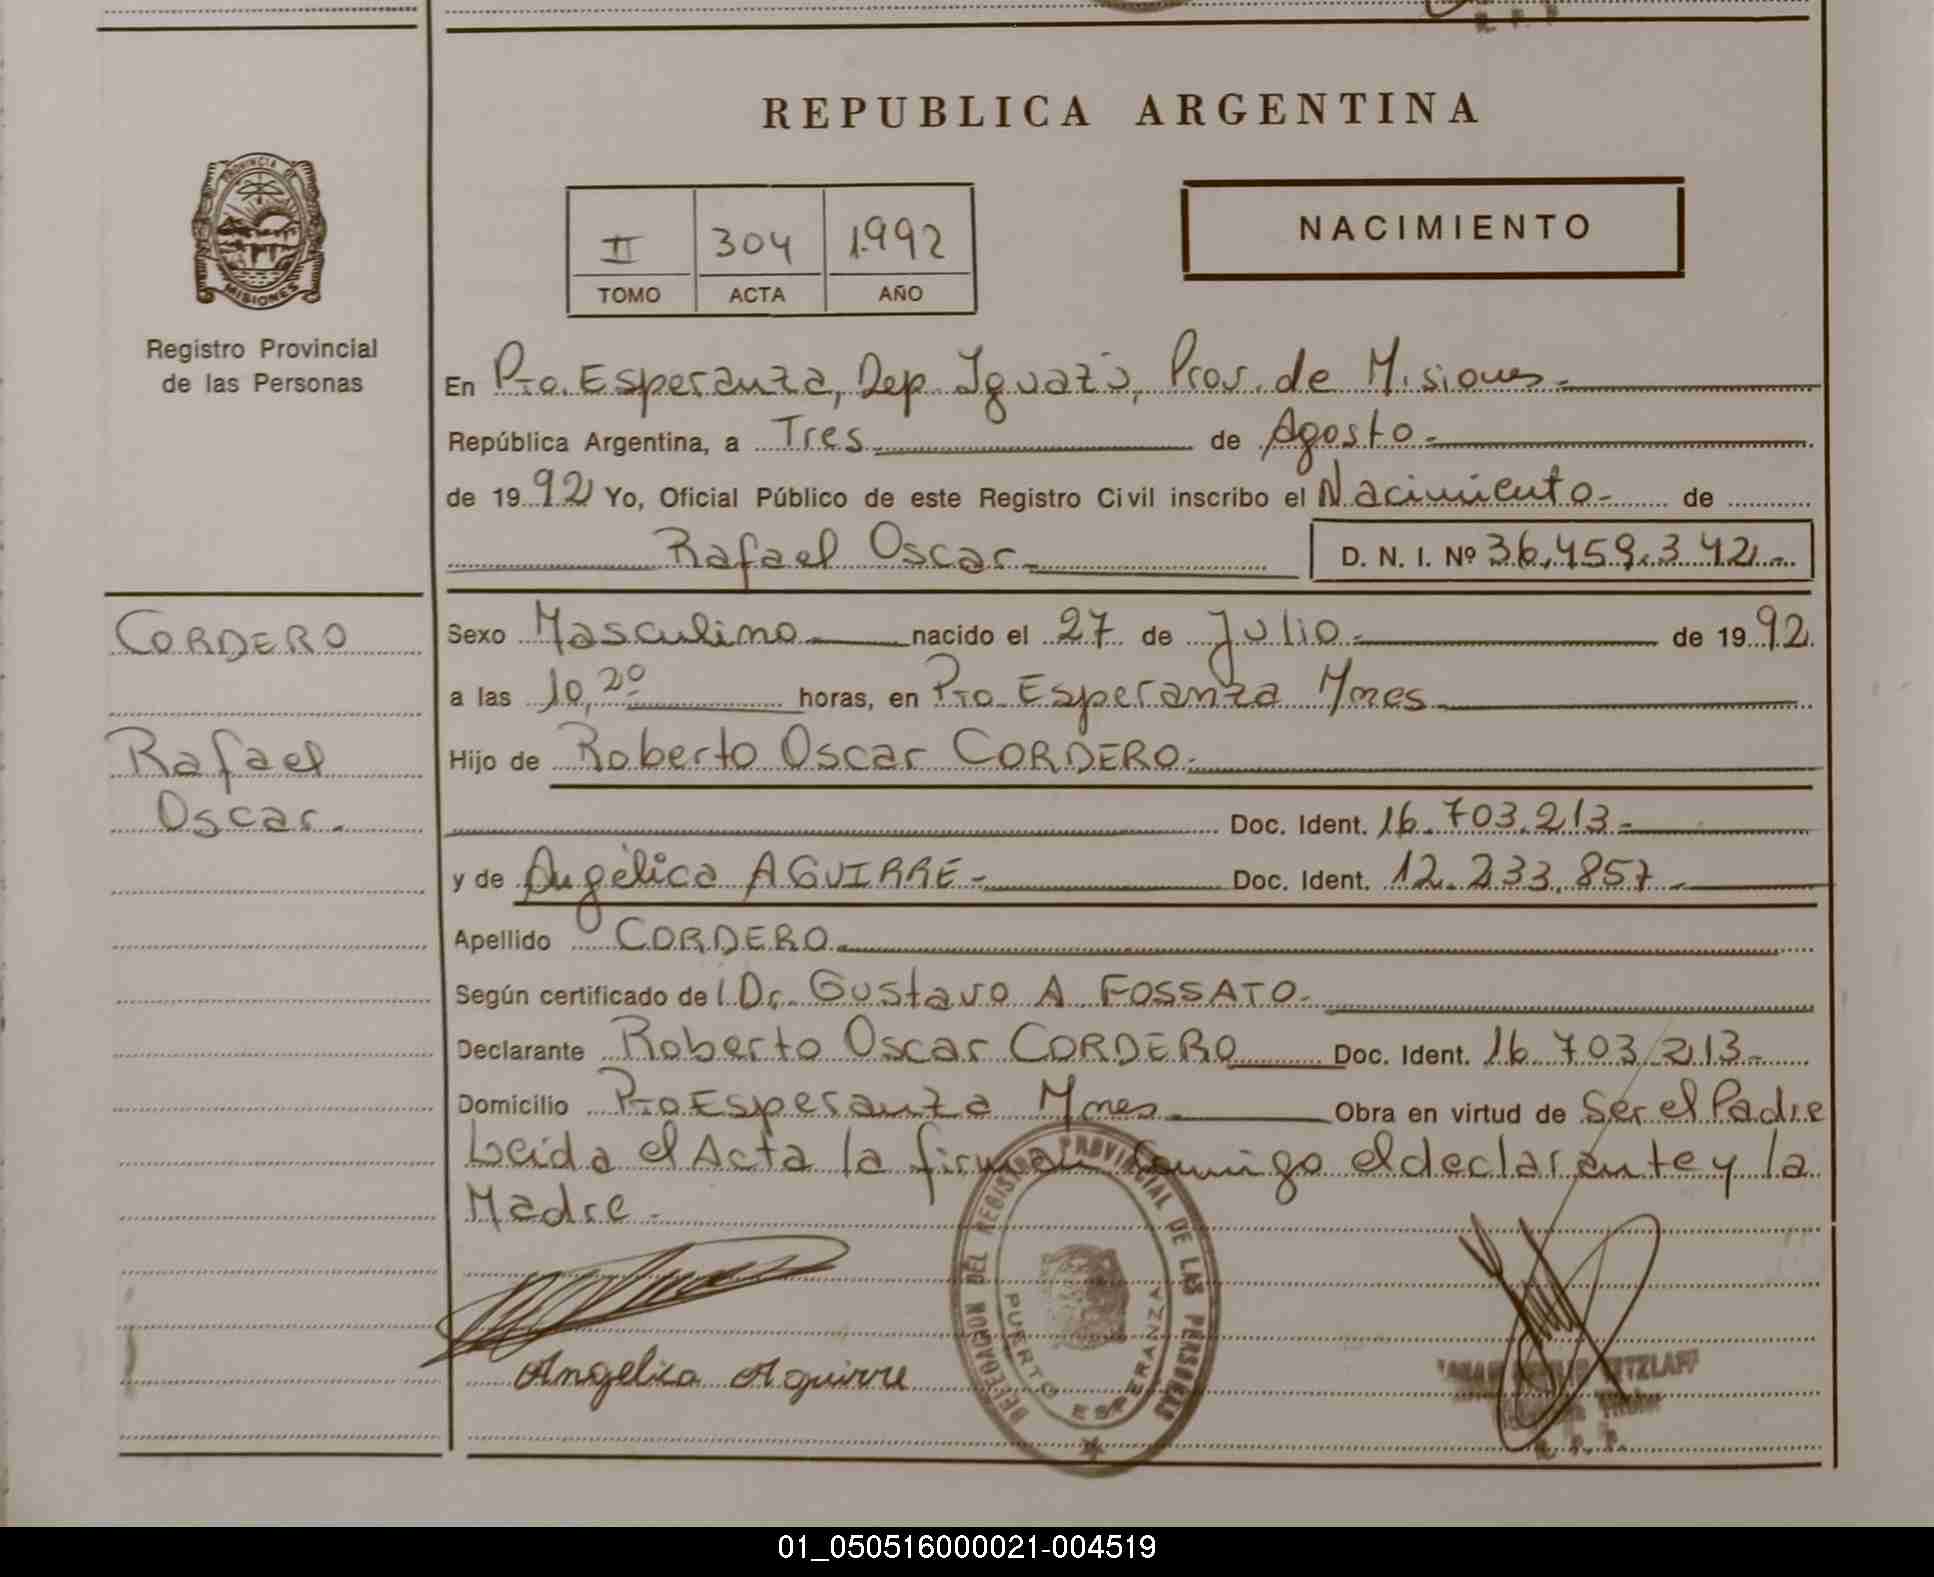 REPUBLICA ARGENTINA
PROVINCIA DE
MISIONES
Registro Provincial
de las Personas
II 304 1.992
TOMO ACTA AÑO
NACIMIENTO
En Pto. Esperanza, Dep. Iguazú, Prov. de Misiones.-
República Argentina, a Tres de Agosto.-
de 1992 Yo, Oficial Público de este Registro Civil inscribo el Nacimiento.- de
Rafael Oscar.- D. N. I. Nº 36.459.342.-
CORDERO
Rafael
Oscar.-
Sexo Masculino nacido el 27 de Julio.- de 1992.
a las 10,20 horas, en Pto. Esperanza Mnes
Hijo de Roberto Oscar CORDERO.-
Doc. Ident. 16.703.213.-
y de Angélica AGUIRRE.- Doc. Ident. 12.233.857.-
Apellido CORDERO.-
Según certificado de l Dr. Gustavo A. FOSSATO.-
Declarante Roberto Oscar CORDERO Doc. Ident. 16.703.213.-
Domicilio Pto Esperanza Mnes Obra en virtud de Ser el Padre
Leida el Acta la firman Conmigo el declarante y la
Madre.-
Angelica Aguirre
DELEGACION DEL REGISTRO PROVINCIAL DE LAS PERSONAS
PUERTO ESPERANZA
01_050516000021-004519